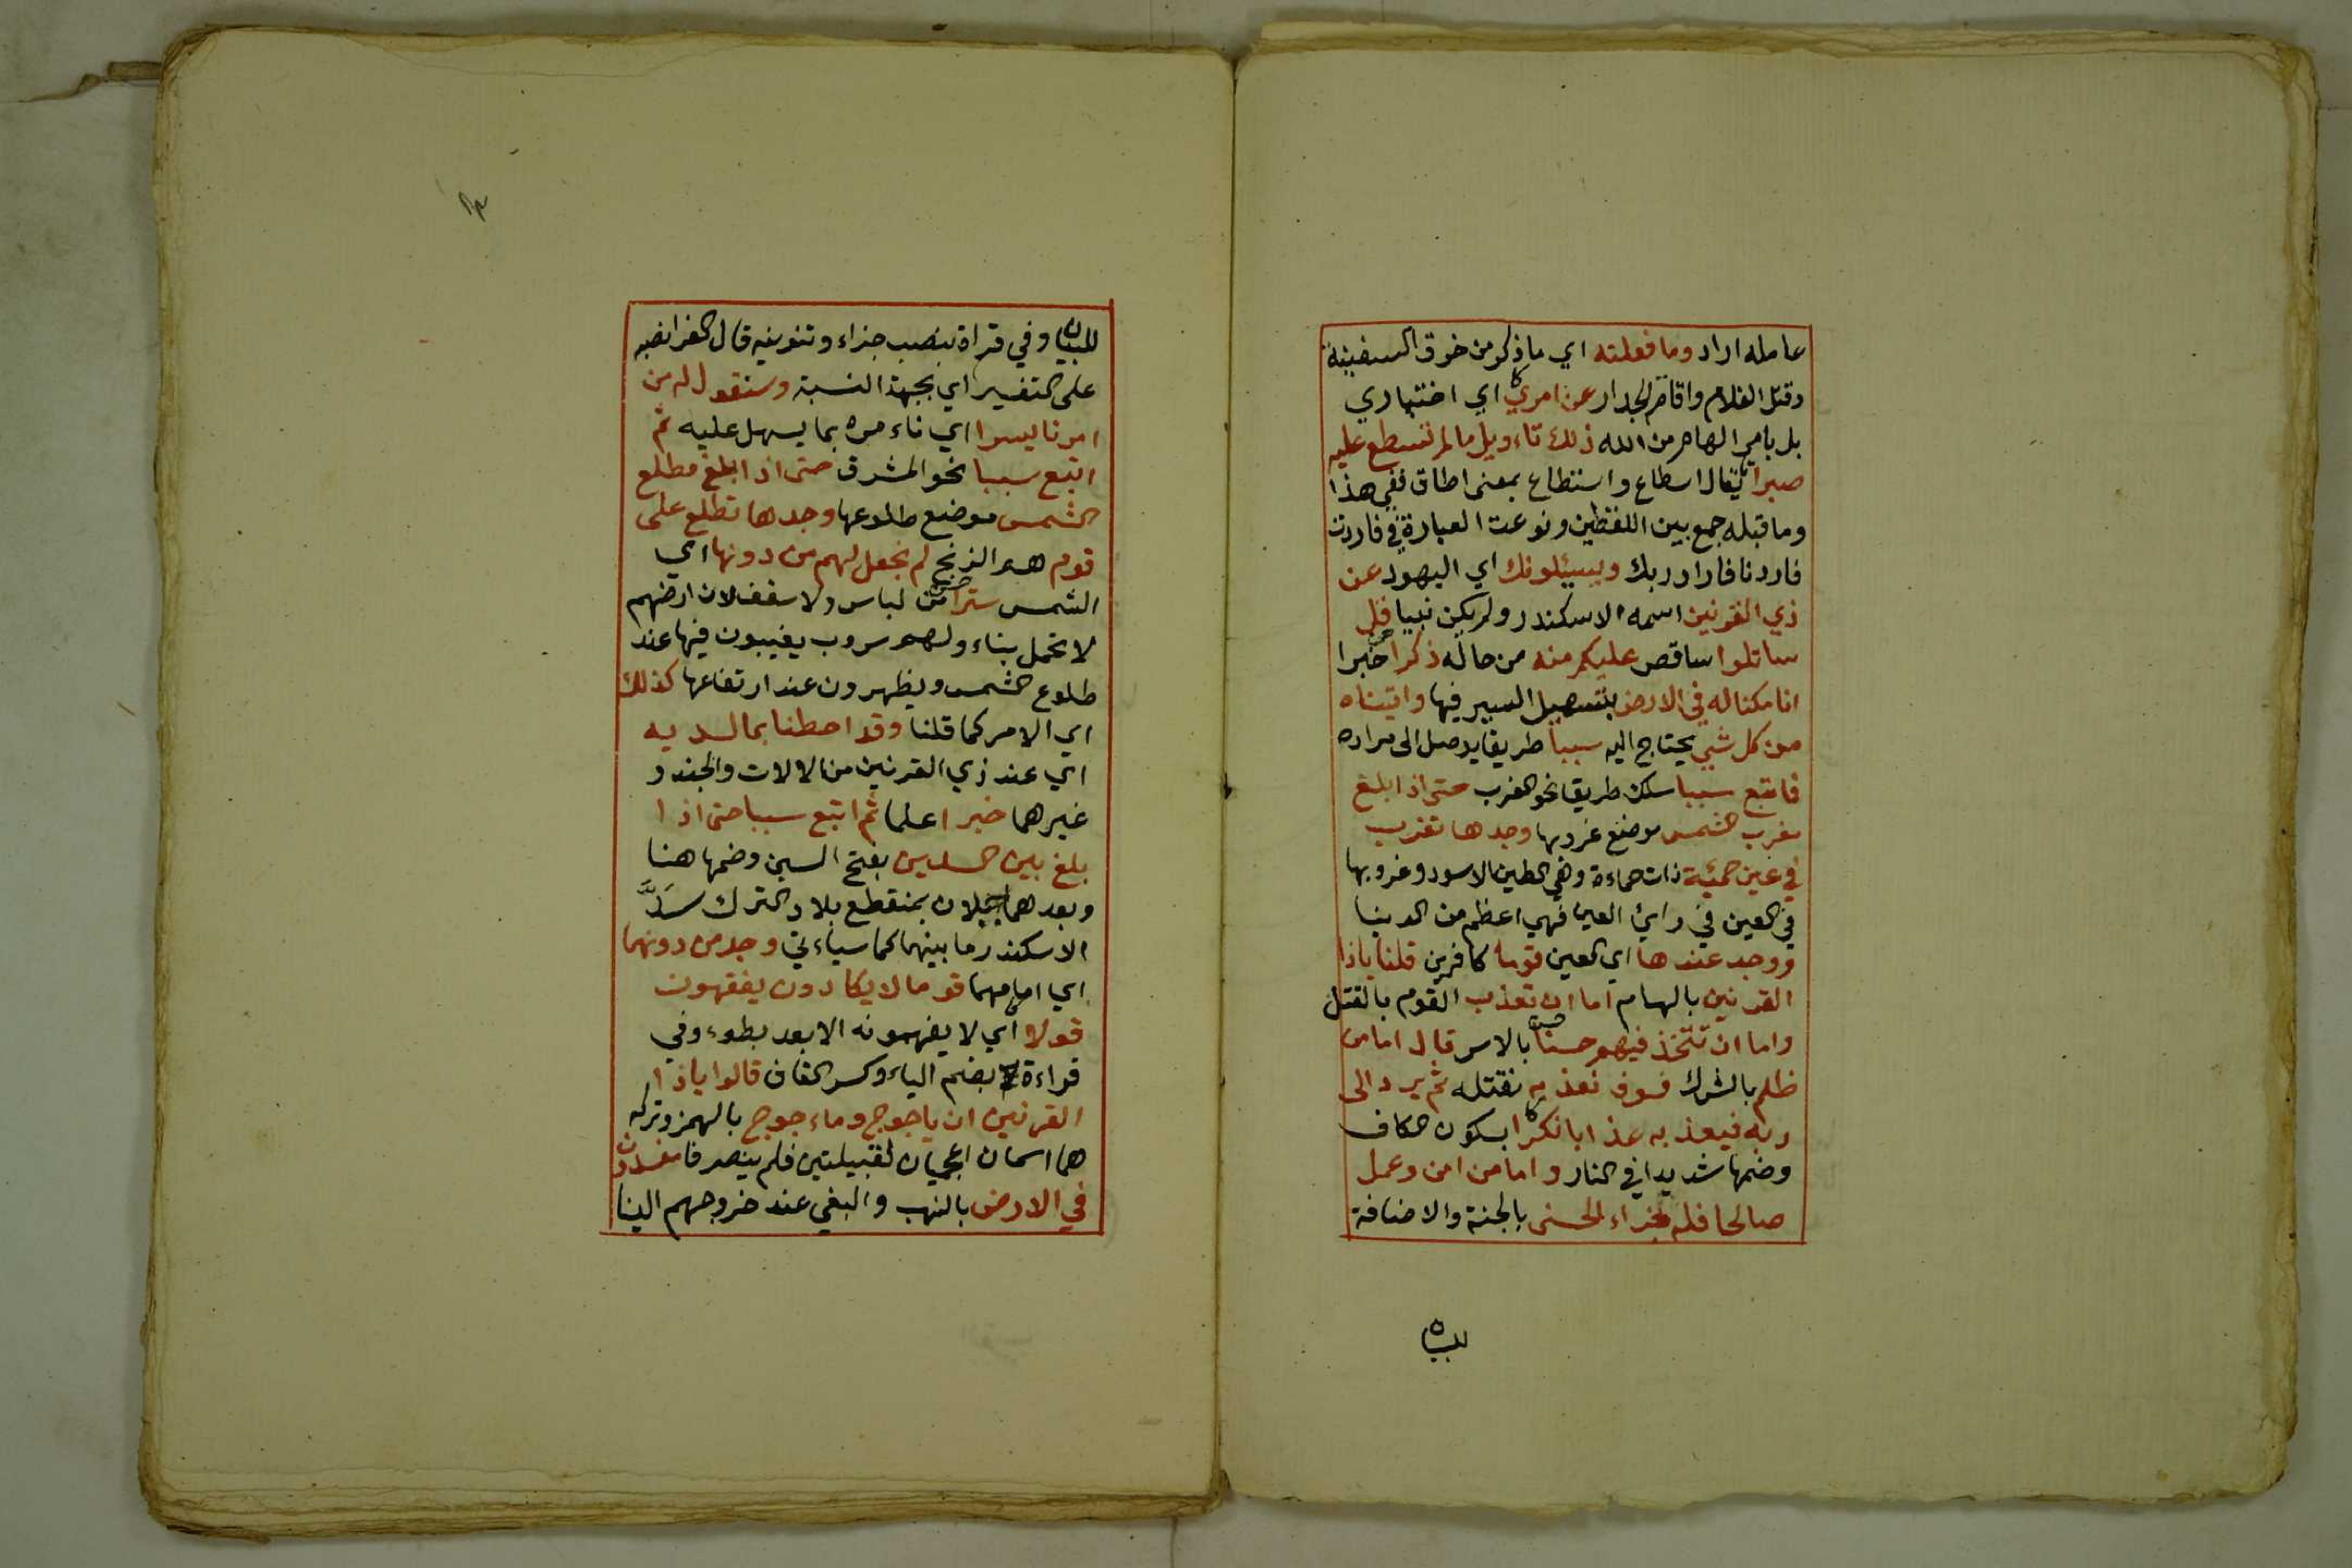 عامله اراد وما فعلته اي ما ذكر من خرق السفينة
وقتل الغلام واقامة الجدار عن امري اي اختياري
بل بامر الهام من الله ذلك تاءويل ما لم تسطع عليه
صبرا يقال اسطاع واستطاع بمعنى اطاق ففي هذا
وما قبله جمع بين اللغتين ونوعت العبارة في فاردت
فاردنا فاراد ربك ويسئلونك اي اليهود عن
ذي القرنين اسمه الاسكندر ولم يكن نبيا قل
ساتلوا ساقص عليكم منه من حاله ذكرا خبرا
انا مكنا له في الارض بتسهيل السير فيها واتيناه
من كل شي يحتاج اليه سببا طريقا يوصل الى مراده
فاتبع سببا سلك طريقا نحو الغرب حتى اذا بلغ
مغرب الشمس موضع غروبها وجدها تغرب
في عين حمئة ذات حماءة وهي الطين الاسود وغروبها
في العين في راي العين فهي اعظم من الدنيا
ووجد عندها اي العين قوما كافرين قلنا ياذا
القرنين بالهام اما ان تعذب القوم بالقتل
واما ان تتخذ فيهم حسنا بالاسر قال اما من
ظلم بالشرك فسوف نعذبه نقتله ثم يرد الى
ربه فيعذبه عذابا نكرا بسكون الكاف
وضمها شديدا في النار واما من امن وعمل
صالحا فله جزاء الحسنى بالجنة والاضافة
للبيان
للبيان وفي قراة بنصب جزاء وتنوينه قال الفرا نصبه
على التفسير اي بجهة النسبة وسنقول له من
امرنا يسرا اي ناءمره بما يسهل عليه ثم
اتبع سببا نحو المشرق حتى اذا بلغ مطلع
الشمس موضع طلوعها وجدها تطلع على
قوم هم الزنج لم نجعل لهم من دونها اي
الشمس سترا من لباس ولا سقف لان ارضهم
لا تحمل بناء ولهم سروب يغيبون فيها عند
طلوع الشمس ويظهرون عند ارتفاعها كذلك
اي الامر كما قلنا وقد احطنا بما لديه
اي عند ذي القرنين من الالات والجند و
غيرهما خبرا علما ثم اتبع سببا حتى اذا
بلغ بين السدين بفتح السين وضمها هنا
وبعدهما جبلان بمنقطع بلاد الترك سدَّ
الاسكندر ما بينهما كما سياءتي وجد من دونهما
اي امامهما قوما لا يكادون يفقهون
قولا اي لا يفهمونه الا بعد بطوء وفي
قراءة بضم الياء وكسر القاف قالوا ياذا
القرنين ان ياجوج وماءجوج بالهمز وتركه
هما اسمان اعجميان لقبيلتين فلم ينصرفا مفسدون
في الارض بالنهب والبغي عند خروجهم الينا